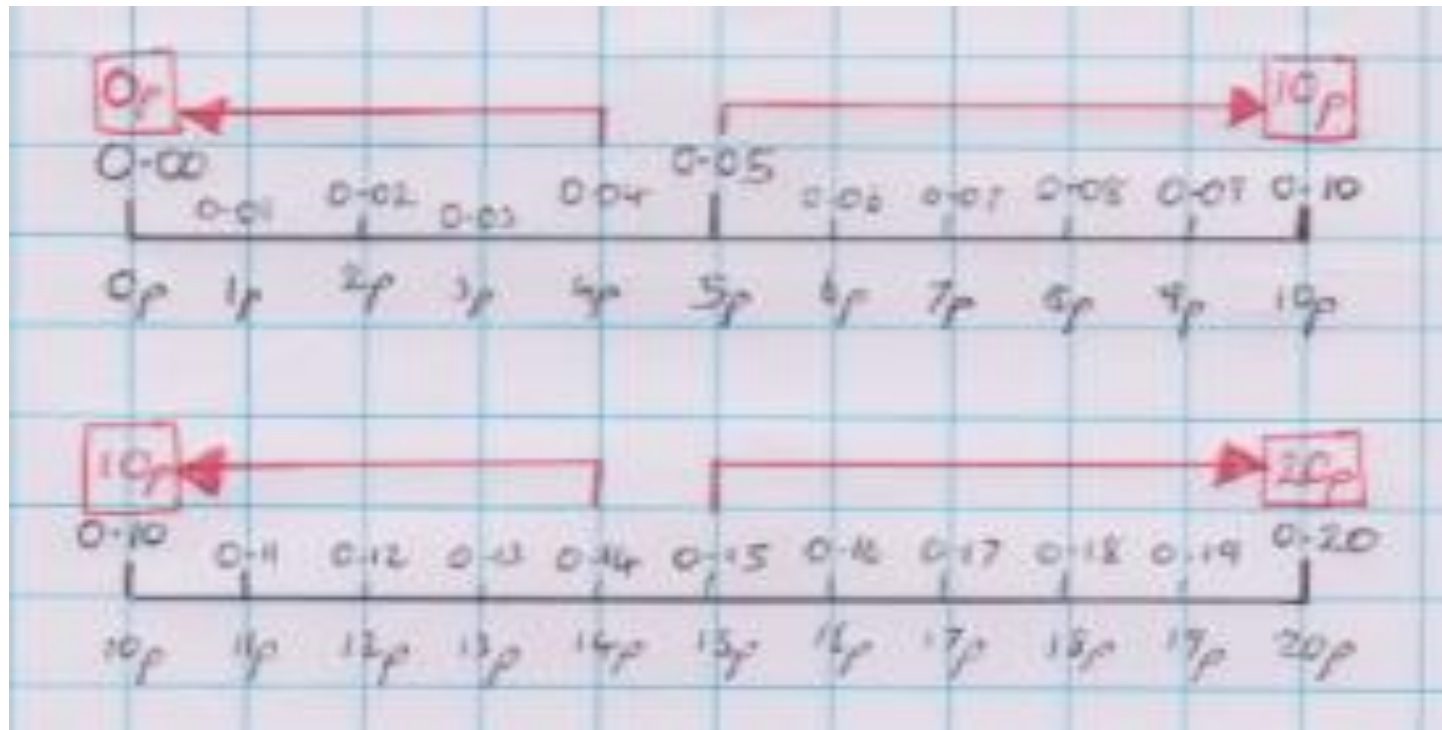 0p 10p
0.00 0.01 0.02 0.03 0.04 0.05 0.06 0.07 0.08 0.09 0.10
0p 1p 2p 3p 4p 5p 6p 7p 8p 9p 10p
10p 20p
0.10 0.11 0.12 0.13 0.14 0.15 0.16 0.17 0.18 0.19 0.20
10p 11p 12p 13p 14p 15p 16p 17p 18p 19p 20p